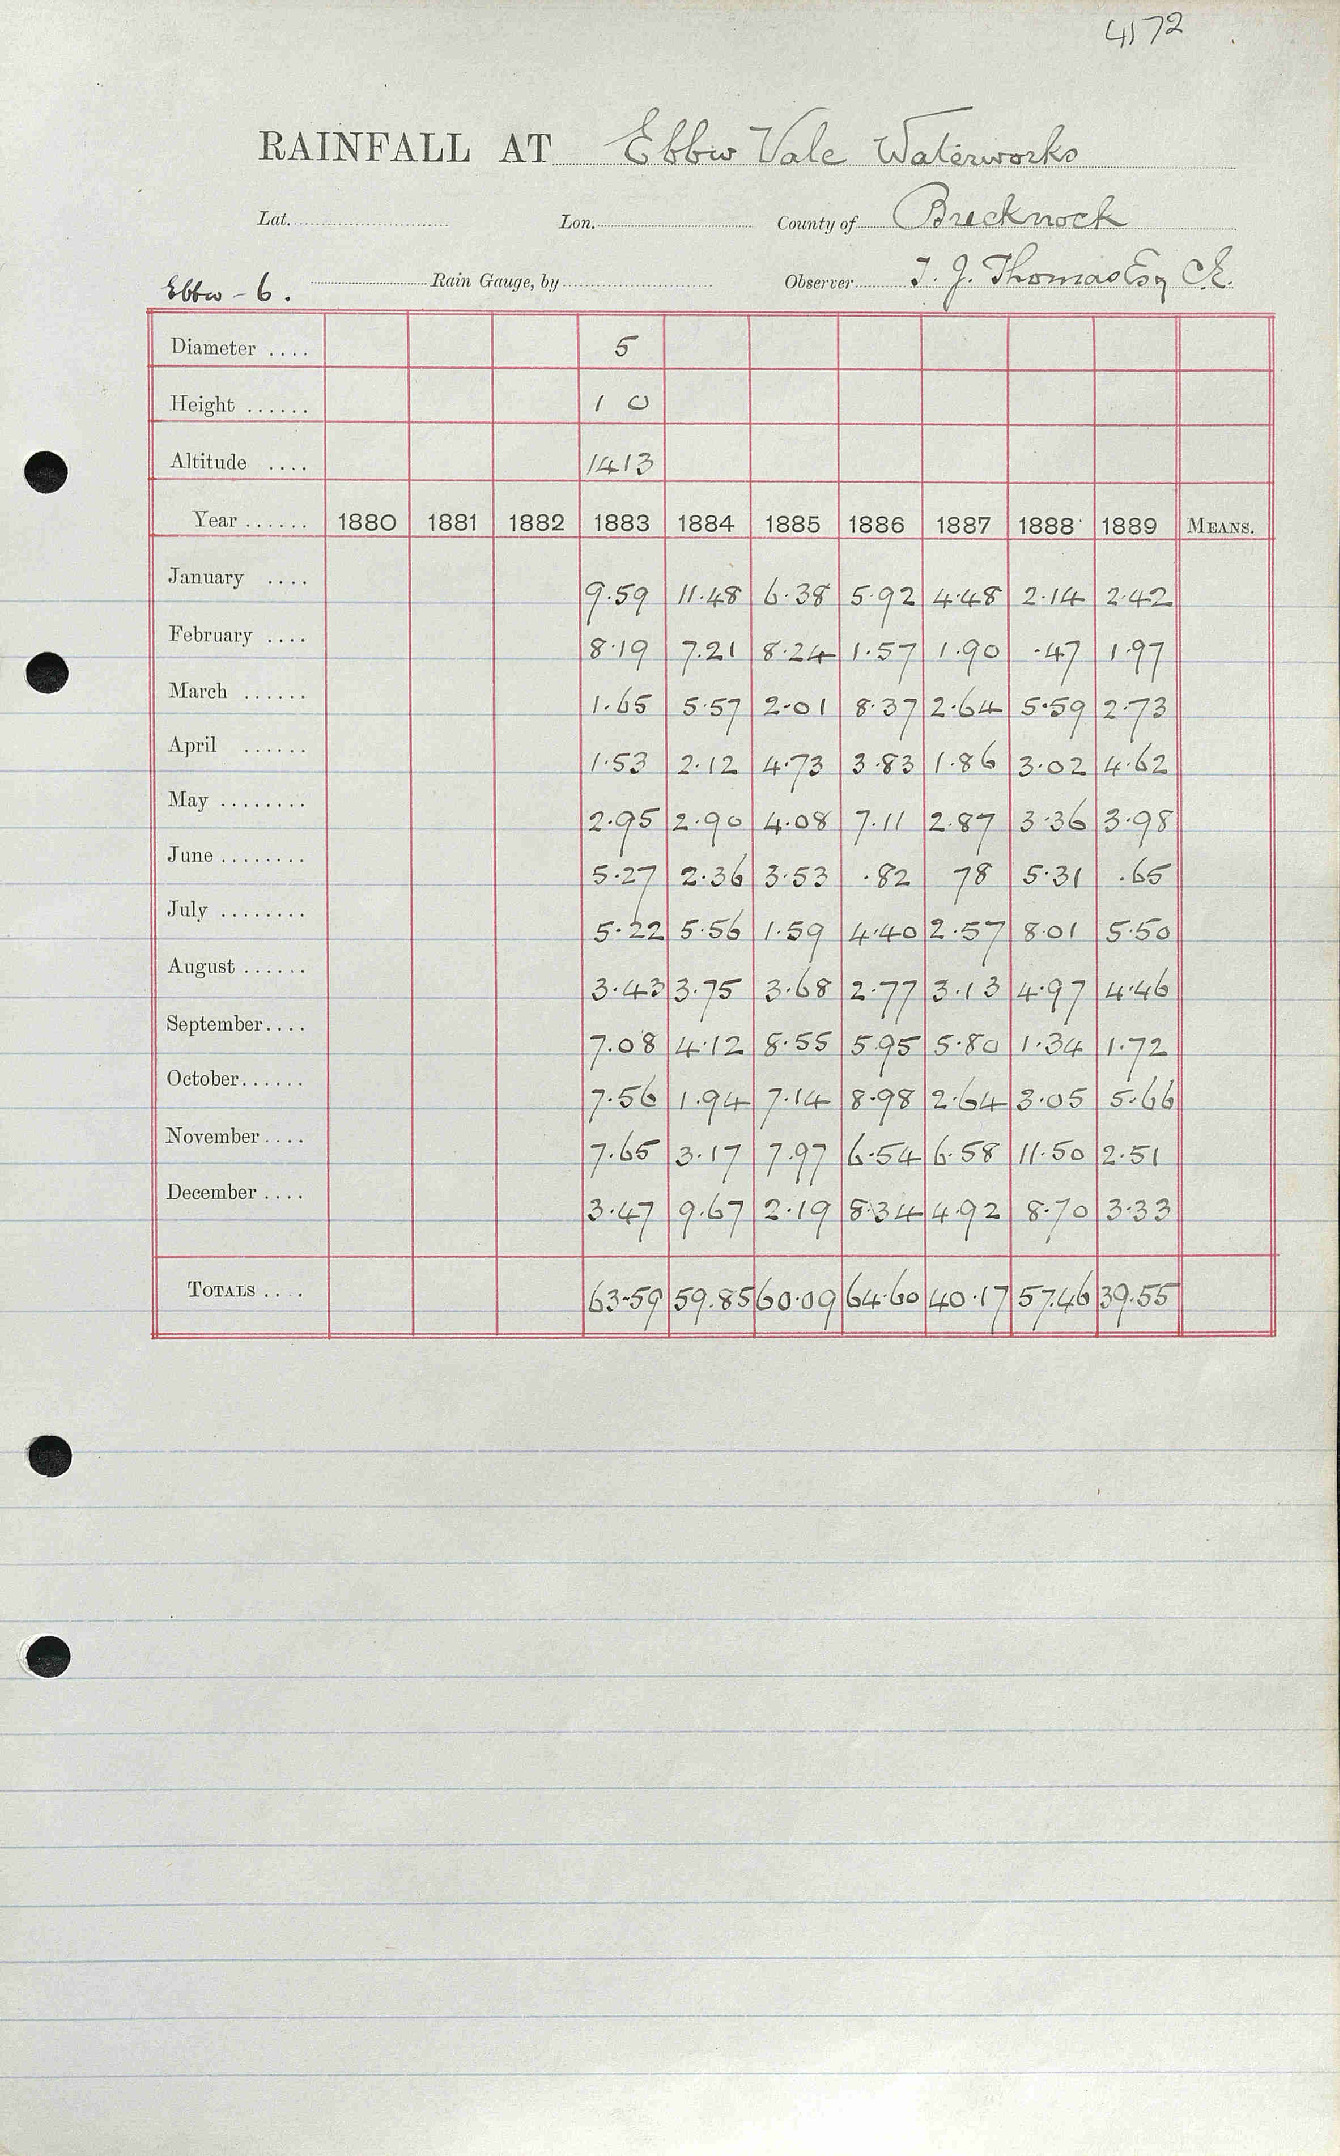 4172
RAINFALL AT Ebbw Vale Waterworks
Lat. Lon. County of Brecknock
Ebbw - 6. Rain Gauge, by Observer T. J. Thomas Esq C.E.
Diameter .... 5
Height ...... 1 0
Altitude .... 1413
Year ...... 1880 1881 1882 1883 1884 1885 1886 1887 1888 1889 MEANS.
January .... 9.59 11.48 6.38 5.92 4.48 2.14 2.42
February .... 8.19 7.21 8.24 1.57 1.90 .47 1.97
March ...... 1.65 5.57 2.01 8.37 2.64 5.59 2.73
April ...... 1.53 2.12 4.73 3.83 1.86 3.02 4.62
May ........ 2.95 2.90 4.08 7.11 2.87 3.36 3.98
June ........ 5.27 2.36 3.53 .82 78 5.31 .65
July ........ 5.22 5.56 1.59 4.40 2.57 8.01 5.50
August ...... 3.43 3.75 3.68 2.77 3.13 4.97 4.46
September.... 7.08 4.12 8.55 5.95 5.80 1.34 1.72
October...... 7.56 1.94 7.14 8.98 2.64 3.05 5.66
November.... 7.65 3.17 7.97 6.54 6.58 11.50 2.51
December .... 3.47 9.67 2.19 8.34 4.92 8.70 3.33
TOTALS .... 63.59 59.85 60.09 64.60 40.17 57.46 39.55